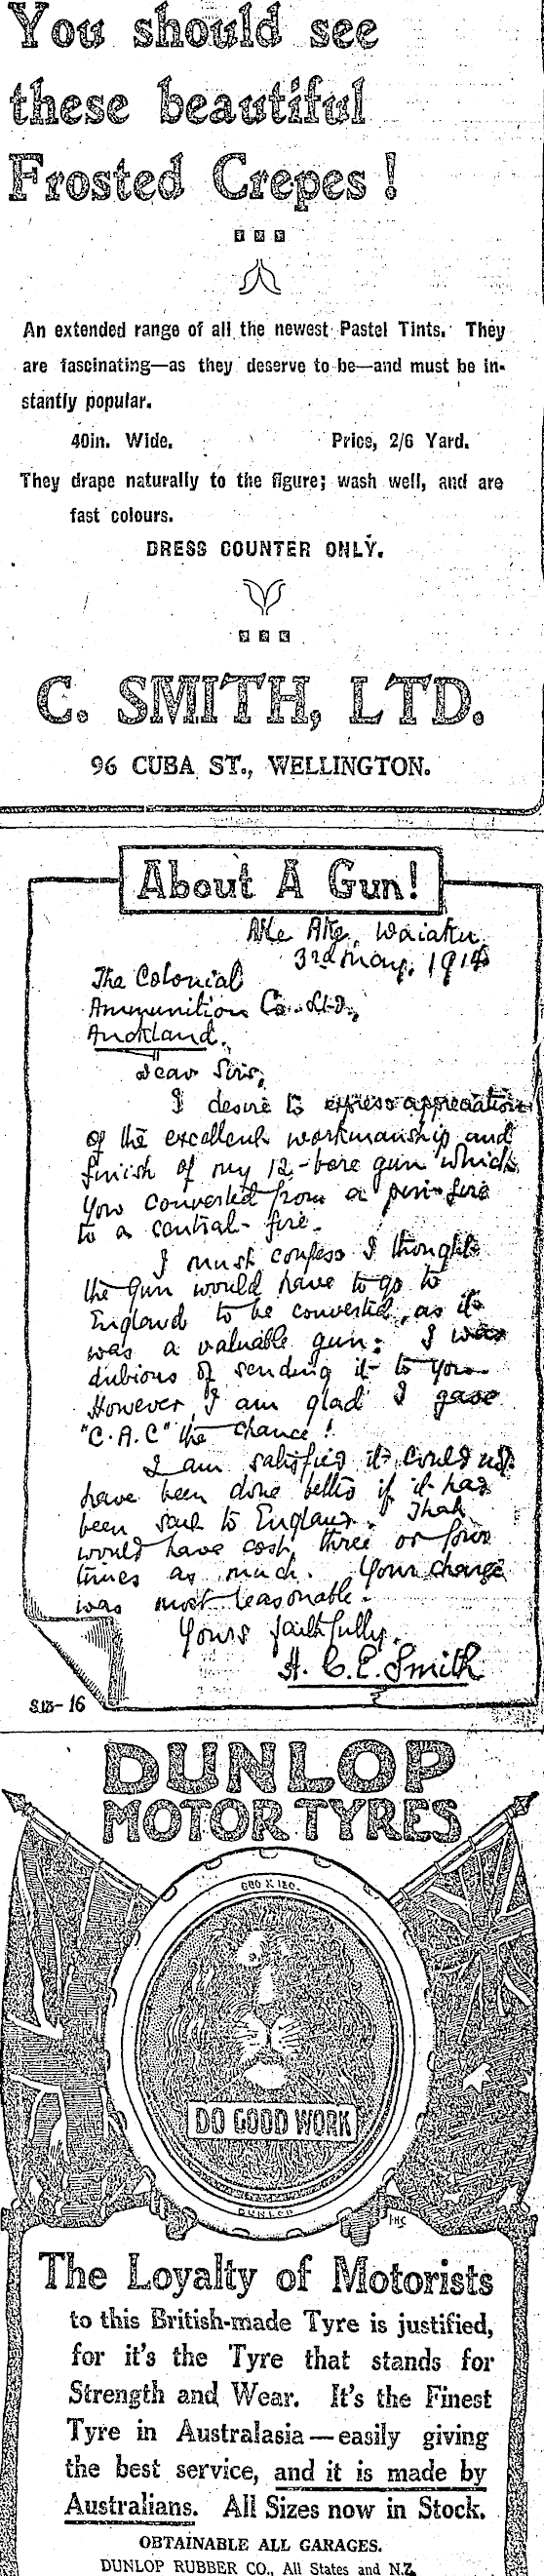 You should see
these beautiful
Frosted Crepes!
An extended range of all the newest Pastel Tints. They
are fascinating—as they deserve to be—and must be in-
stantly popular.
40in. Wide. Price, 2/6 Yard.
They drape naturally to the figure; wash well, and are
fast colours.
DRESS COUNTER ONLY.
C. SMITH, LTD.
96 CUBA ST., WELLINGTON.
About A Gun!
Ake Ake, Waiaku,
3rd May, 1914
The Colonial
Ammunition Co. Ltd.,
Auckland.
Dear Sirs,
I desire to express appreciation
of the excellent workmanship and
finish of my 12-bore gun which
you converted from a pin-fire
to a central-fire.
I must confess I thought
the gun would have to go to
England to be converted, as it
was a valuable gun: I was
dubious of sending it to you
However, I am glad I gave
"C.A.C" the chance!
I am satisfied it could not
have been done better if it had
been sent to England. That
would have cost three or four
times as much. Your charge
was most reasonable.
Yours faithfully,
H. C. E. Smith
S.13-16
DUNLOP
MOTOR TYRES
DO GOOD WORK
DUNLOP
The Loyalty of Motorists
to this British-made Tyre is justified,
for it's the Tyre that stands for
Strength and Wear. It's the Finest
Tyre in Australasia—easily giving
the best service, and it is made by
Australians. All Sizes now in Stock.
OBTAINABLE ALL GARAGES.
DUNLOP RUBBER CO., All States and N.Z.